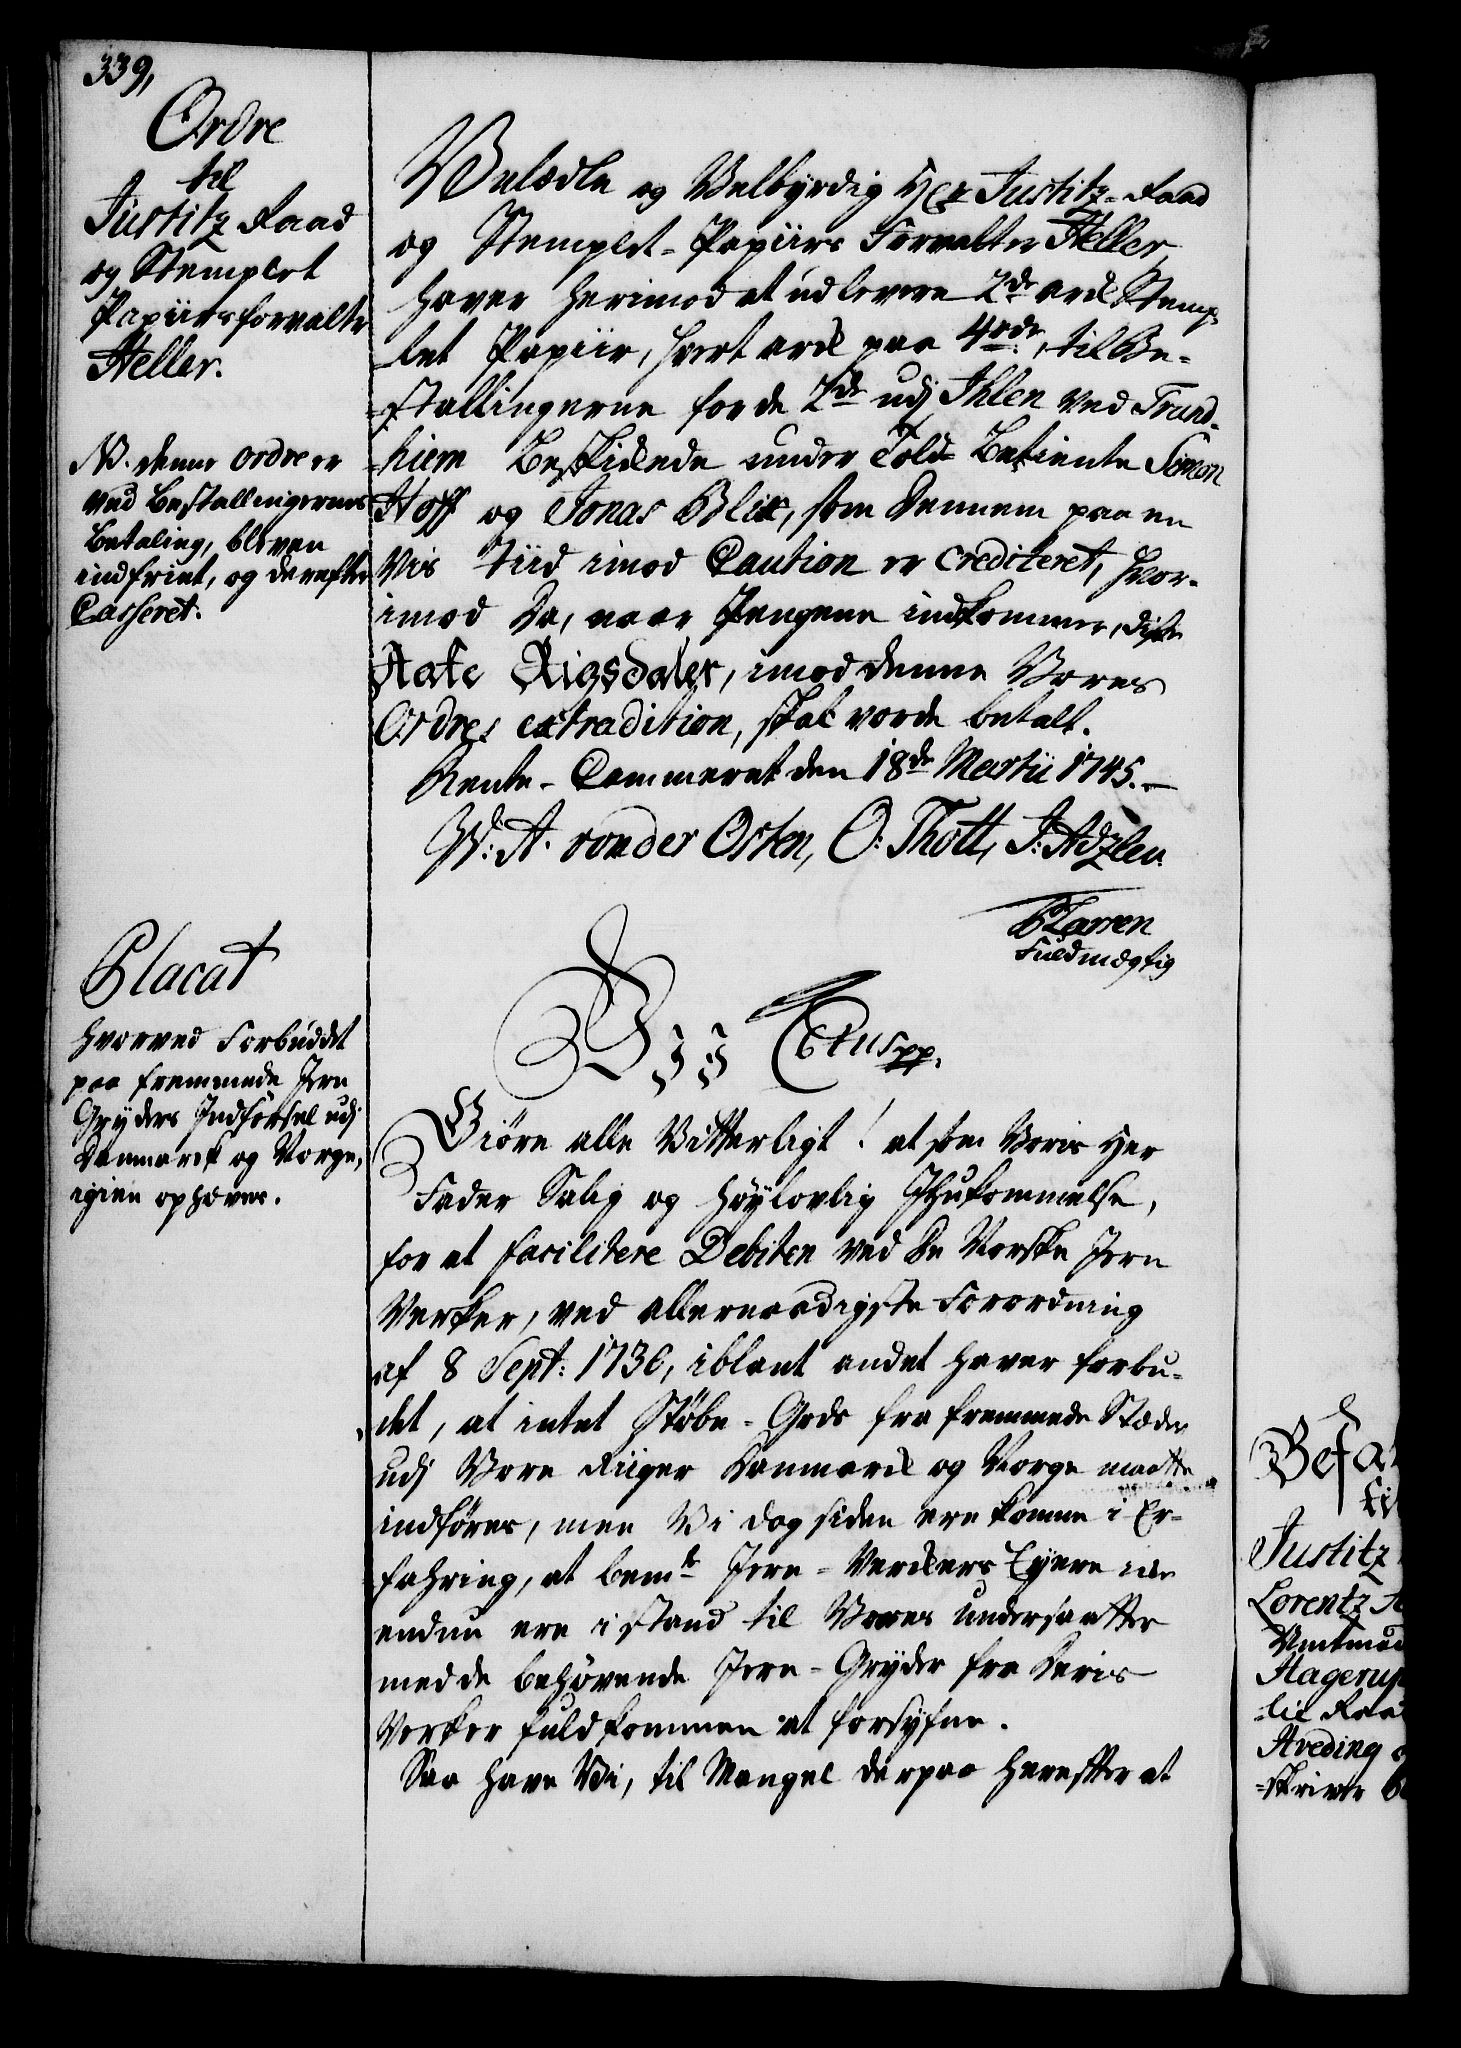 339,
Ordre
til
Justitz Raad
og Stemplet
Papiirsforvalter
Heller.
NB. denne ordre er
ved Bestallingernes
Betaling, bleven
indfriet, og derefter
Casseret.
Velædle og Velbyrdig Her Justitz-Raad
og Stemplet-Papiirs Forvalter Heller
haver herimod at udlevere 2de ark Stemp-
let Papiir, hvert ark paa 4 rdr, til Be-
stallingerne for de 2de udj Ihlen ved Trund-
hiem Beskikkede under Told Betiente Simon
Hoff og Jonas Blix, som dennem paa en
vis tiid imod Caution er crediteret, hvor-
imod da, naar Pengene indkommer, diße
Aate Rigsdaler, imod denne Vores
Ordres extradition, skal vorde betalt.
Rente-Cammeret den 18de Martii 1745.
W: A. von der Osten, O: Thott, J: Adzlev.
Larsen
Fuldmægtig
Placat
hvorved Forbuddet
paa fremmede Jern
Gryders Indførsel udj
Danmark og Norge,
igien ophæves.
Vii Ctus pp.
Giøre alle Vitterligt! at som Voris Her
Fader Salig og Høylovlig Ihukommelse,
for at facilitere Debiten ved de Norske Jern
Verker, ved allernaadigste Forordning
af 8 Sept: 1736, iblant andet haver forbu-
det, at intet Støbe-Gods fra fremmede Stæder
udj Vore Riiger Danmark og Norge maatte
indføres, men Vi dog siden ere komne i Er-
fahring, at bemte Jern-Verkers Eyere icke
endnu ere i stand til Vores undersaatter
med de behøvende Jern-Gryder fra deris
Verker fuldkommen at forsyfne.
Saa have Vi, til Mangel derpaa herefter at
Befa
til
Justitz
Lorentz
Amtmand
Hagerup
Areding
skriver